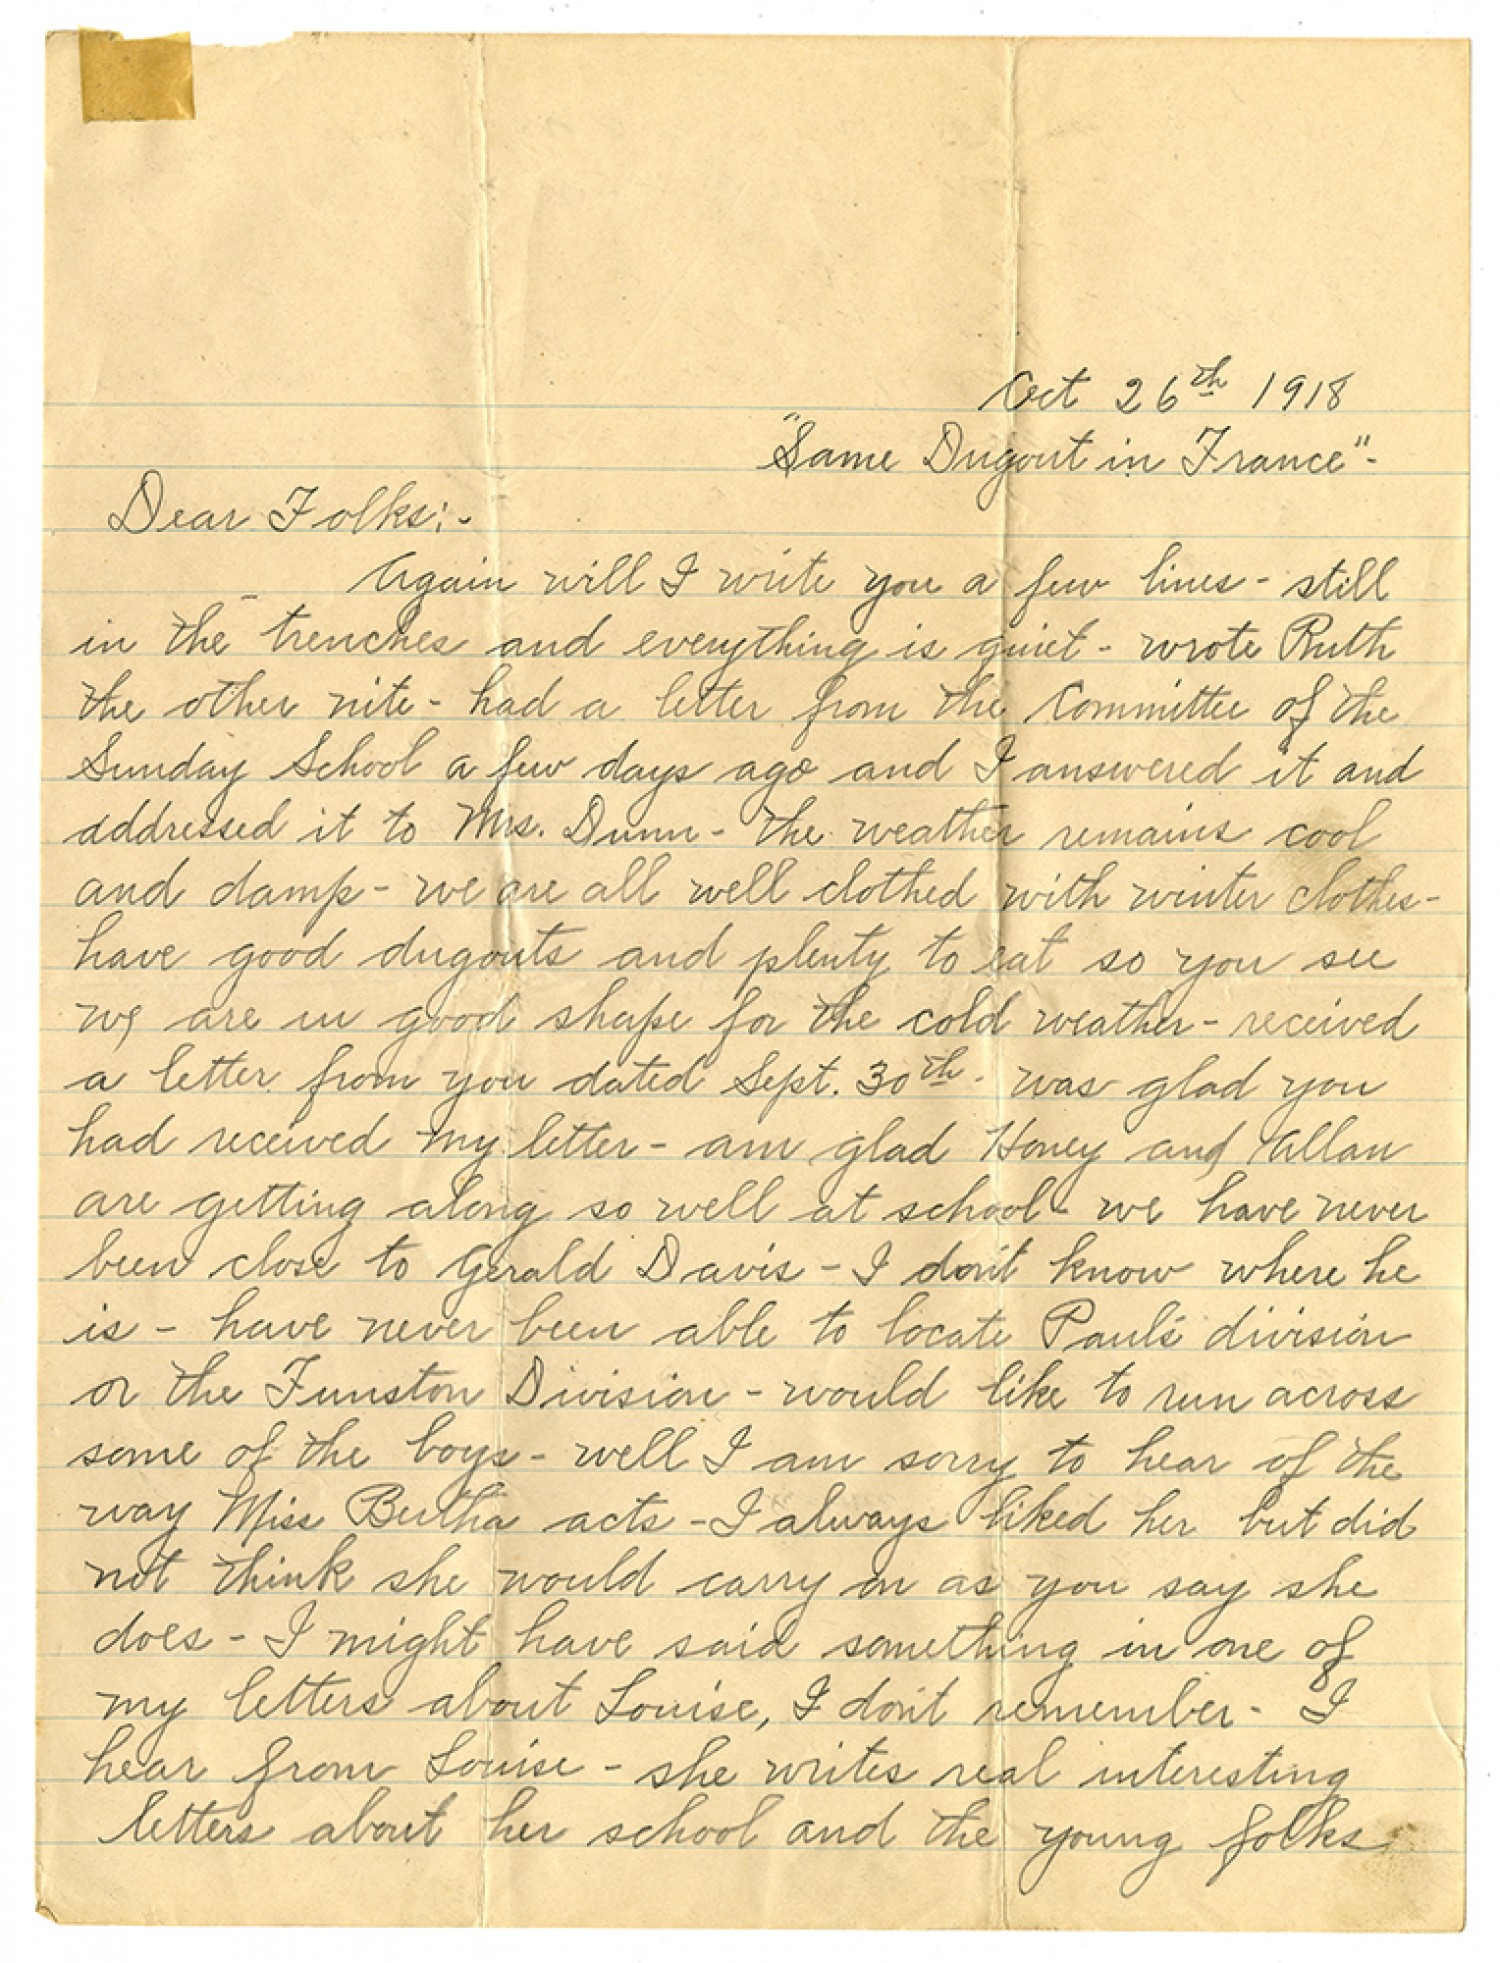 Oct 26th 1918
"Same Dugout in France"-
Dear Folks:-
Again will I write you a few lines - still
in the trenches and everything is quiet - wrote Ruth
the other nite - had a letter from the Committee of the
Sunday School a few days ago and I answered it and
addressed it to Mrs. Dunn - the weather remains cool
and damp - we are all well clothed with winter clothes -
have good dugouts and plenty to eat so you see
we are in good shape for the cold weather - received
a letter from you dated Sept. 30th - was glad you
had received my letter - am glad Honey and Allan
are getting along so well at school - we have never
been close to Gerald Davis - I don't know where he
is - have never been able to locate Paul's division
or the Funston Division - would like to run across
some of the boys - well I am sorry to hear of the
way Miss Bertha acts - I always liked her but did
not think she would carry on as you say she
does - I might have said something in one of
my letters about Louise, I don't remember - I
hear from Louise - she writes real interesting
letters about her school and the young folks